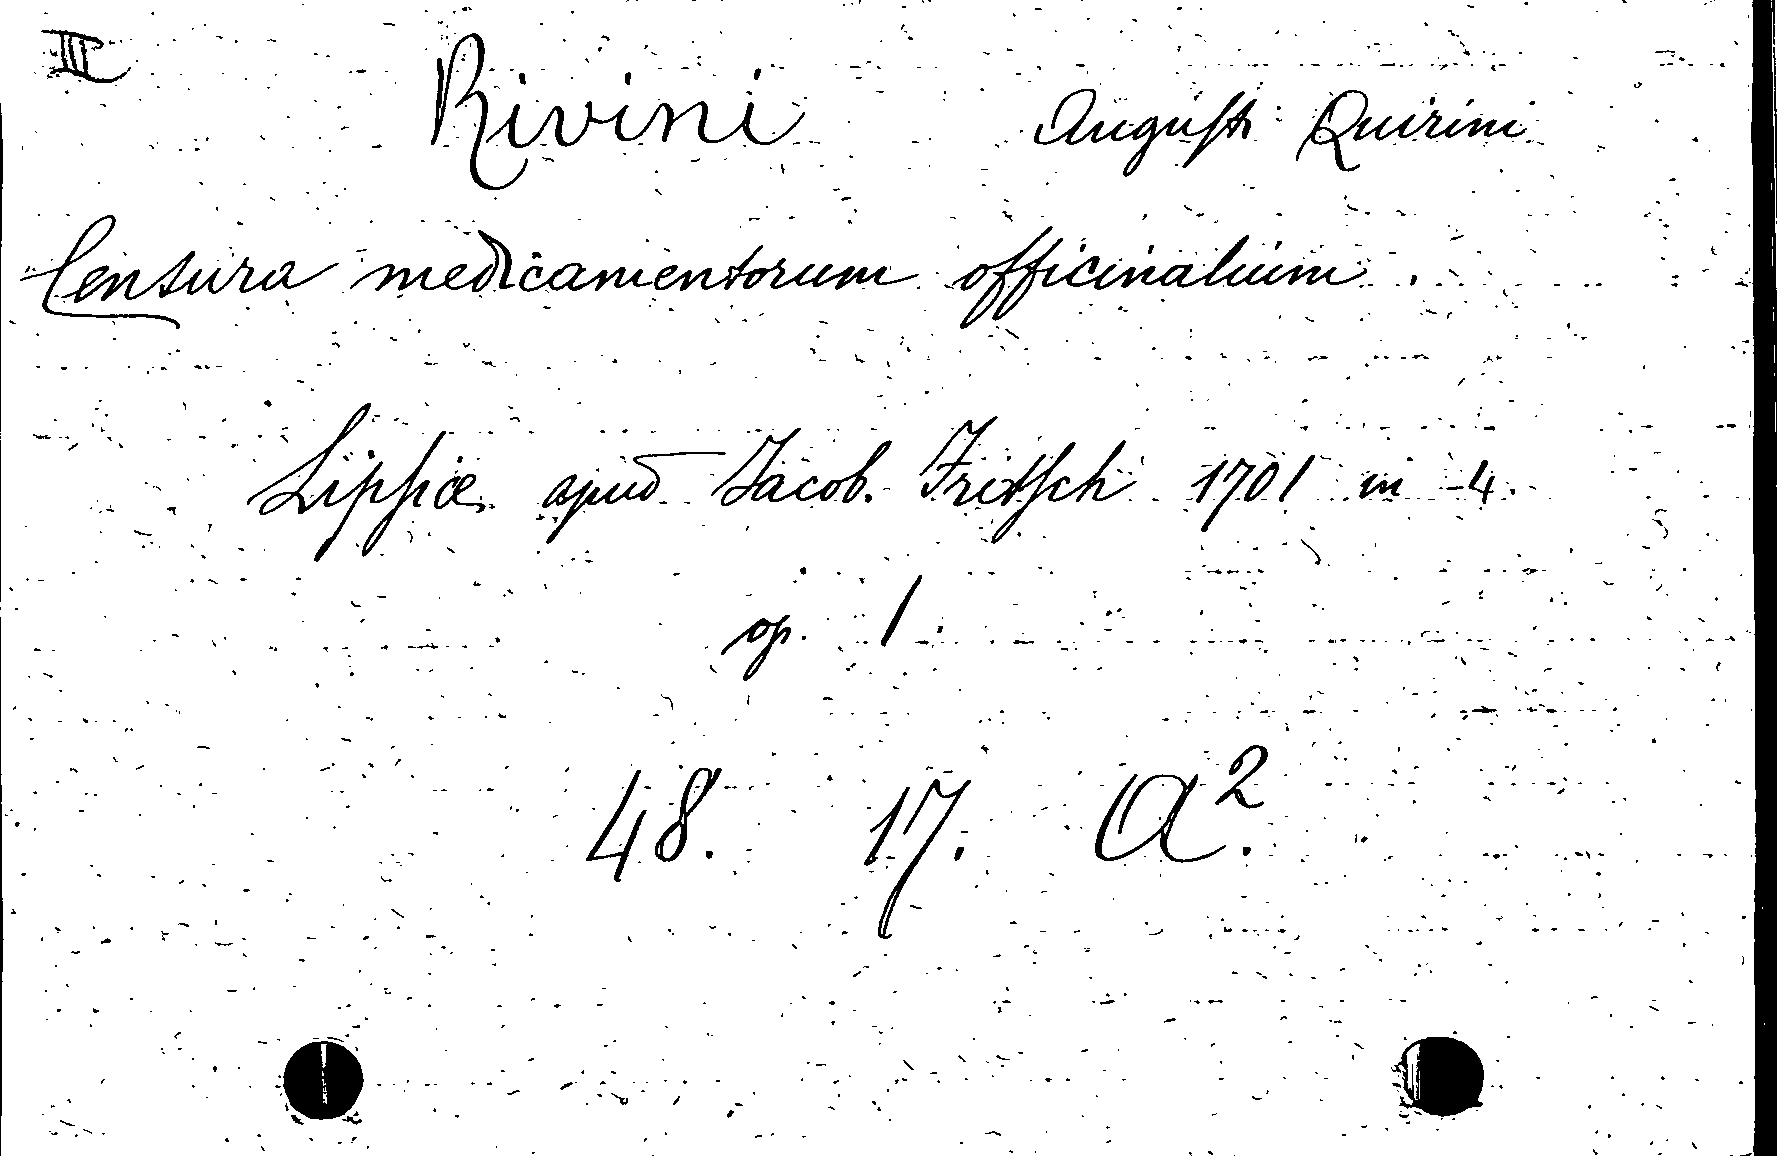 III
Rivini Augusti Quirini
Censura medicamentorum officinalium.
Lipsiæ apud Jacob. Fritsch 1701 in 4.
op. 1.
48. 17. A².